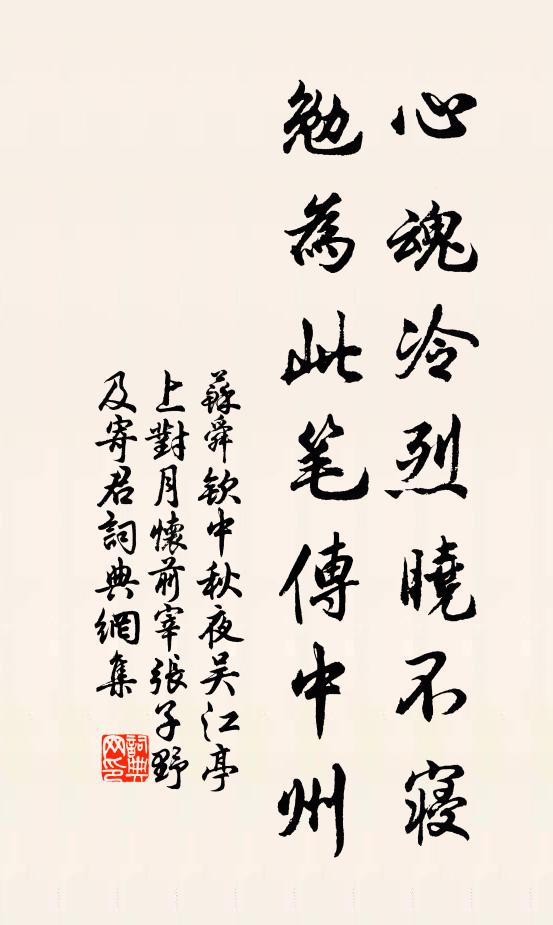 心魂冷烈曉不寢
勉為此笔傳中州
蘇舜欽中秋夜吳江亭
上對月懷前宰張子野
及寄君詞典網集
詞典
网印